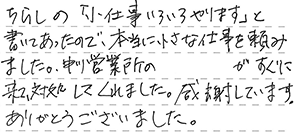 ちらしの「小仕事いろいろやります」と
書いてあったので、本当に小さな仕事を頼み
ました。申し営業所の が すぐに
対処してくれました。感謝しています。
ありがとうございました。